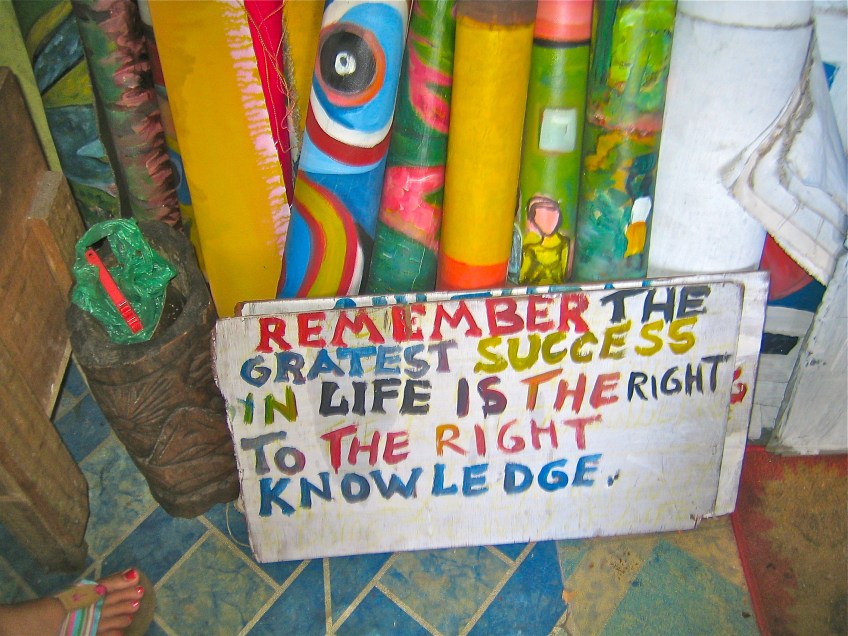 REMEMBER THE
GRATEST SUCCESS
IN LIFE IS THE RIGHT
TO THE RIGHT
KNOWLEDGE.